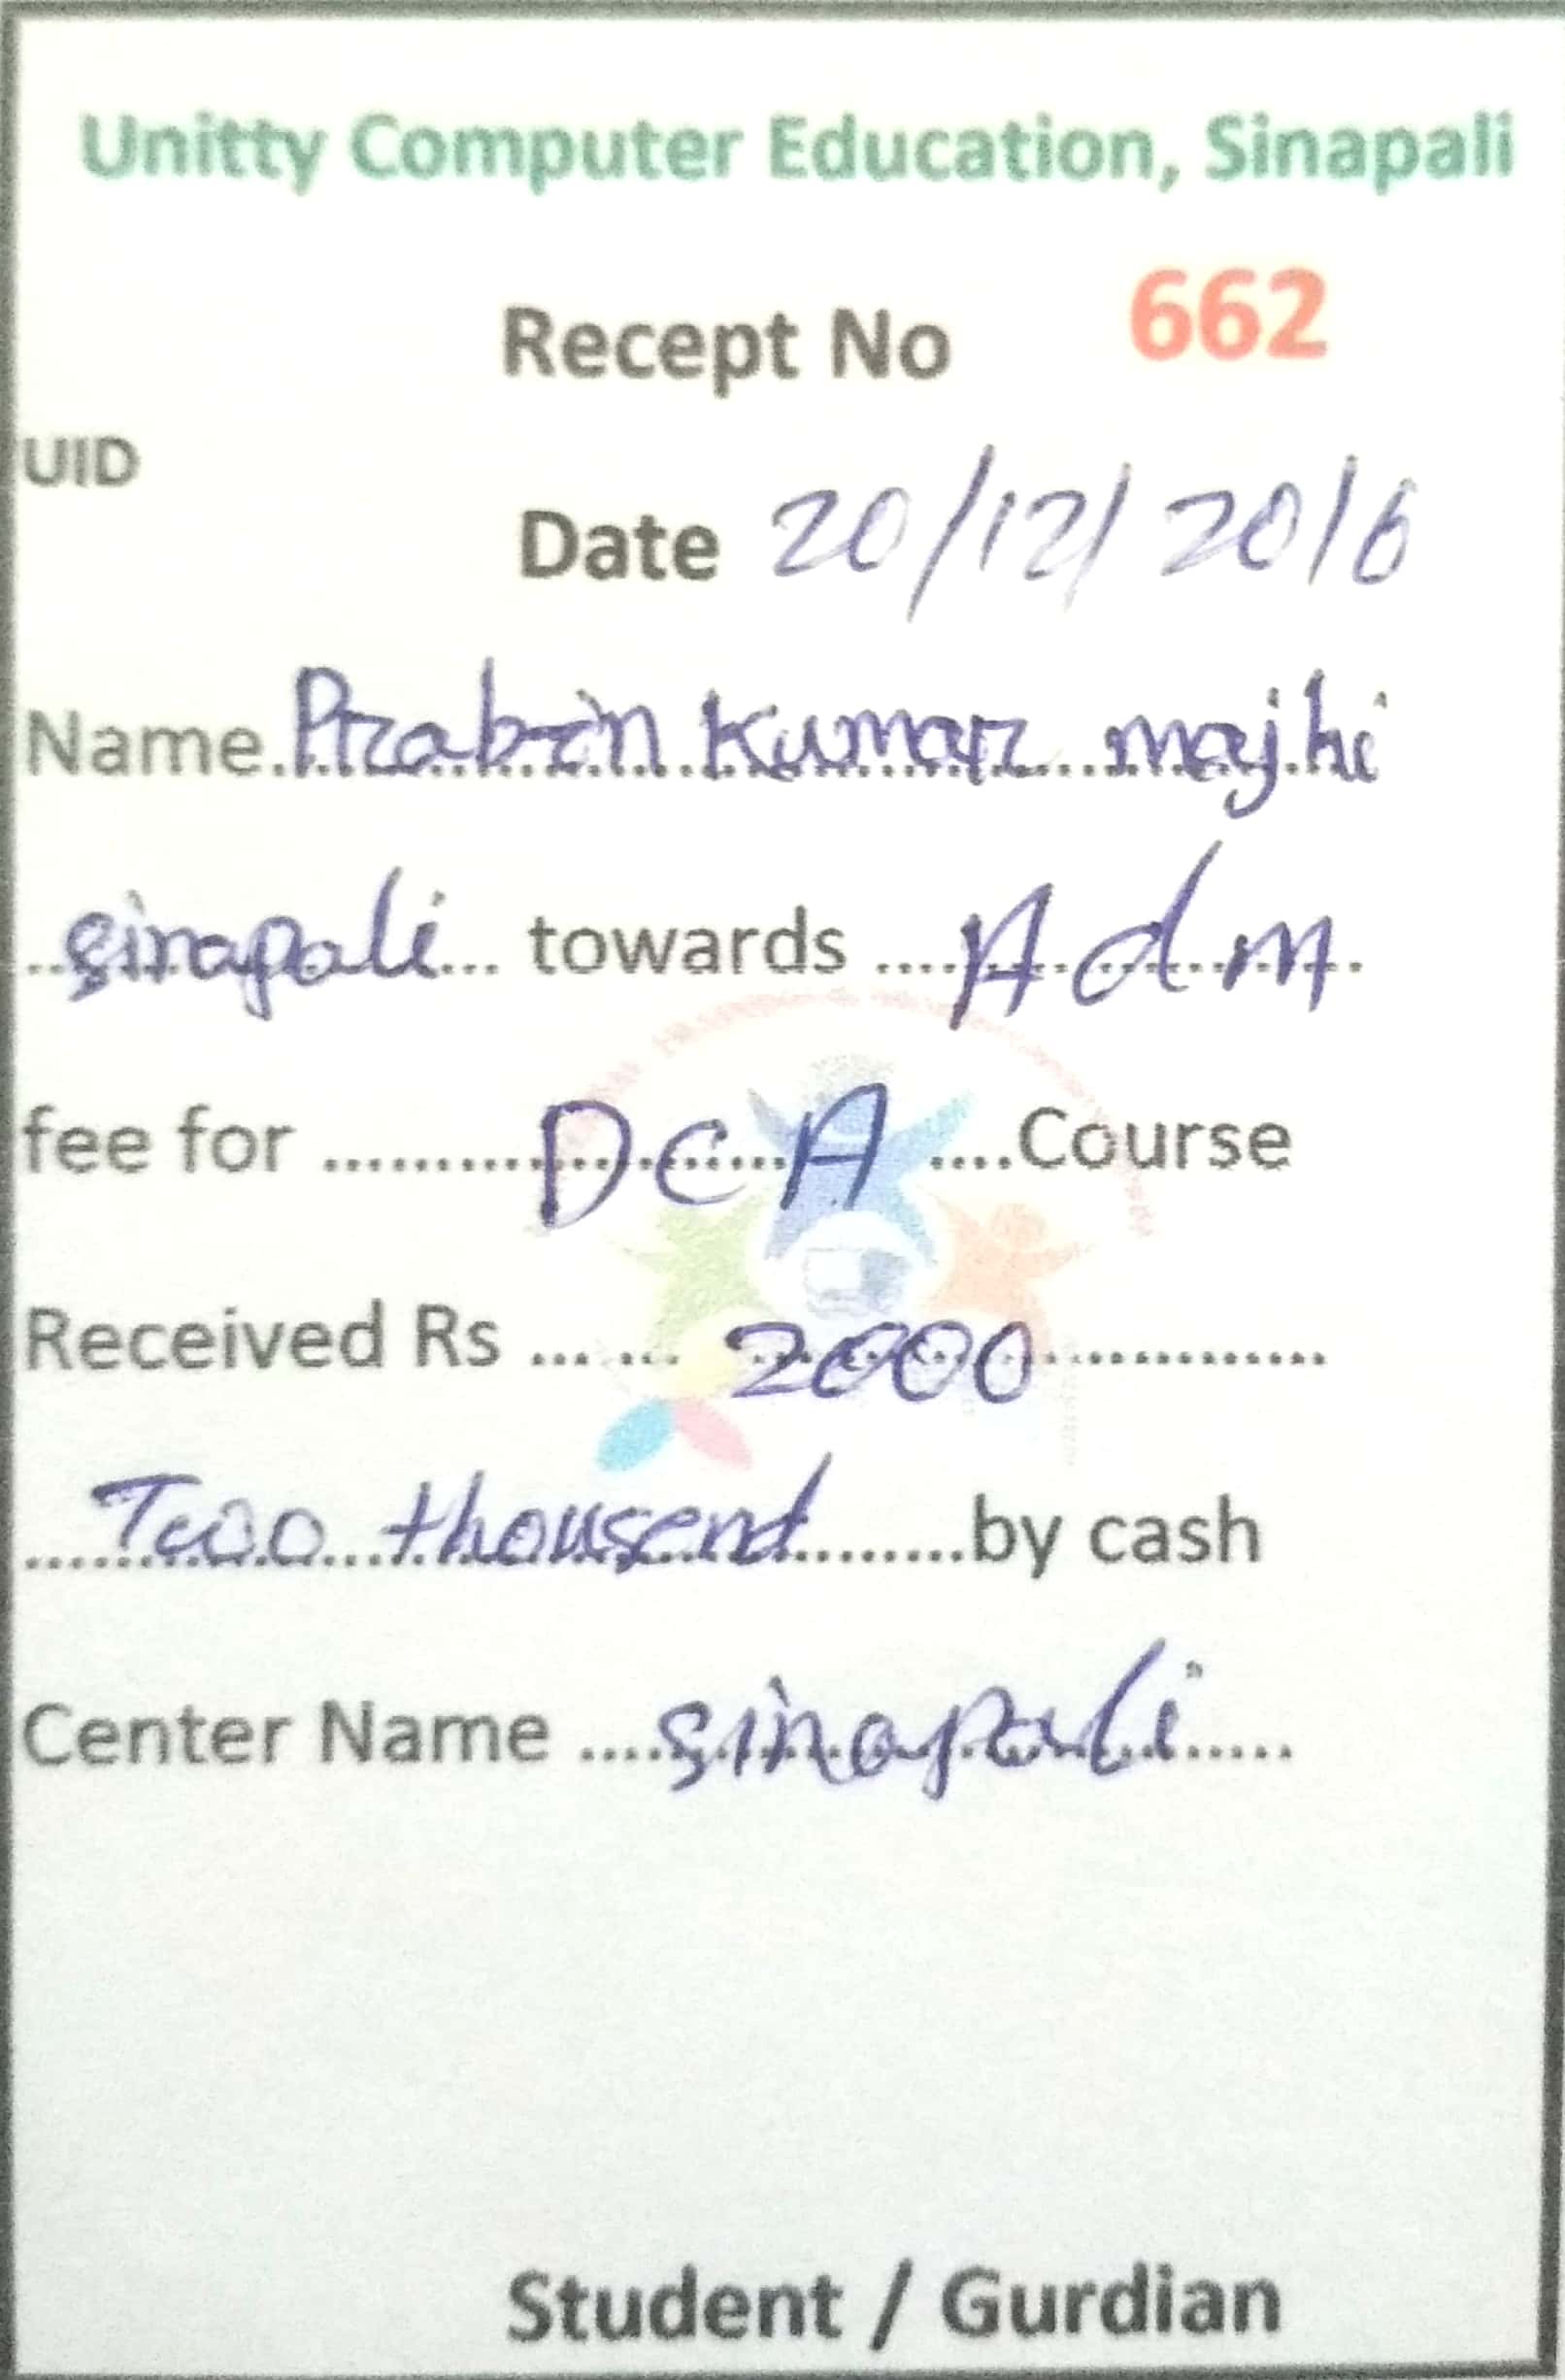 Unitty Computer Education, Sinapali
Recept No 662
UID
Date 20/12/2016
Name Prabin Kumar majhi
sinapali towards Adm
fee for DCA Course
Received Rs 2000
Two thousend by cash
Center Name sinapali
Student / Gurdian